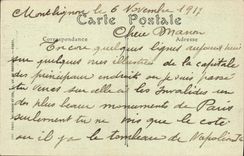 Montlignon le 6 Novembre 1917
Carte Postale
Chère Manon
Correspondance Adresse
Encore quelques lignes aujourd'hui
sur quelques vues illustrés de la capitale
des principaux endroit où je suis passé
tu verras sur celle ci les Invalides un
des plus beaux monuments de Paris
seulement tu ne vois que le coté
ou il y a le tombeau de Napoléon Ier